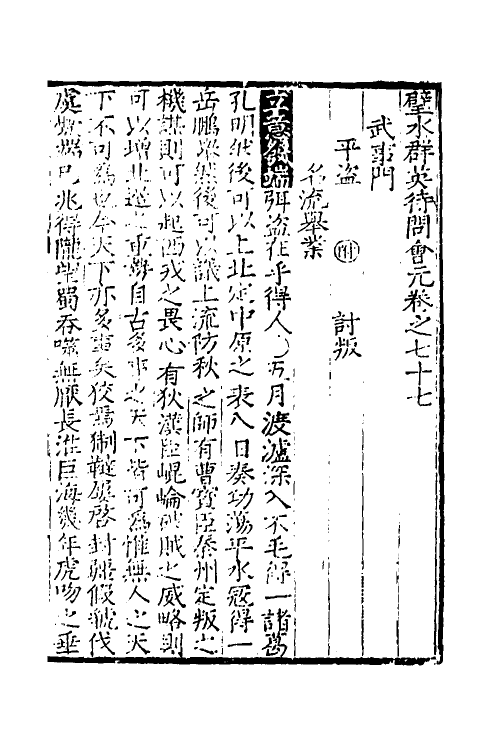 璧水群英待問會元卷之七十七
武事門
平盜 附 討叛
名流舉業
立意發端 弭盜在乎得人○五月渡瀘深入不毛得一諸葛
孔明然後可以上北定中原之表八日奏功蕩平水寇得一
岳鵬舉然後可以議上流防秋之師有曹寶臣秦州定叛之
機謀則可以起西戎之畏心有狄漢臣崐崘破賊之威略則
可以增北邊之重勢自古多事之天下皆可為惟無人之天
下不可為也今天下亦多事矣狡焉猘韃屢啓封疆假虢伐
虞弊端已兆得隴望蜀吞噬無厭長淮巨海幾年虎吻之垂